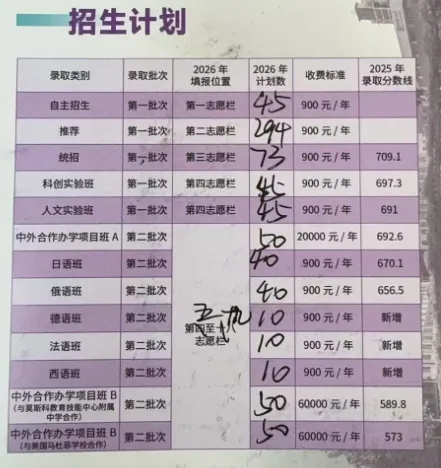 招生计划
录取类别 录取批次 2026年填报位置 2026年计划数 收费标准 2025年录取分数线
自主招生 第一批次 第一志愿栏 45 900元/年
推荐 第一批次 第二志愿栏 294 900元/年
统招 第一批次 第三志愿栏 73 900元/年 709.1
科创实验班 第一批次 第四志愿栏 45 900元/年 697.3
人文实验班 第一批次 第四志愿栏 45 900元/年 691
中外合作办学项目班A 第二批次 50 20000元/年 692.6
日语班 第二批次 40 900元/年 670.1
俄语班 第二批次 40 900元/年 656.5
德语班 第二批次 第四至 志愿栏 10 900元/年 新增
法语班 第二批次 10 900元/年 新增
西语班 第二批次 10 900元/年 新增
中外合作办学项目班B(与莫斯科教育技能中心附属中学合作) 第二批次 50 60000元/年 589.8
中外合作办学项目班B(与美国马杜菲学校合作) 第二批次 50 60000元/年 573